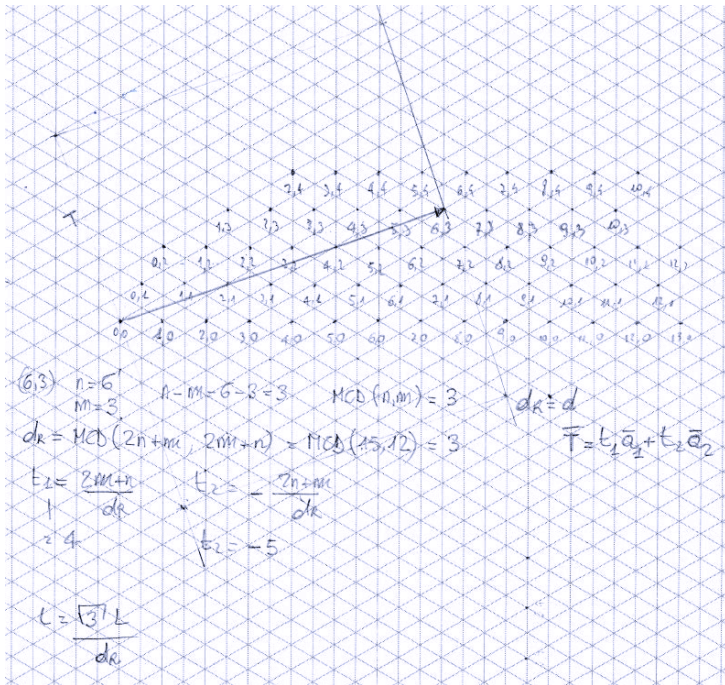 2,4 3,4 4,4 5,4 6,4 7,4 8,4 9,4 10,4
T
1,3 2,3 3,3 4,3 5,3 6,3 7,3 8,3 9,3 10,3
0,2 1,2 2,2 3,2 4,2 5,2 6,2 7,2 8,2 9,2 10,2 11,2 12,2
0,1 1,1 2,1 3,1 4,1 5,1 6,1 7,1 8,1 9,1 10,1 11,1 12,1
0,0 1,0 2,0 3,0 4,0 5,0 6,0 7,0 8,0 9,0 10,0 11,0 12,0 13,0
(6,3) n=6 n-m=6-3=3 MCD(n,m)=3
m=3 dR=d
dR = MCD(2n+m, 2m+n) = MCD(15,12) = 3 T̅=t1a̅1+t2a̅2
t1= 2m+n / dR t2= - 2n+m / dR
= 4 t2=-5
= √3 L / dR